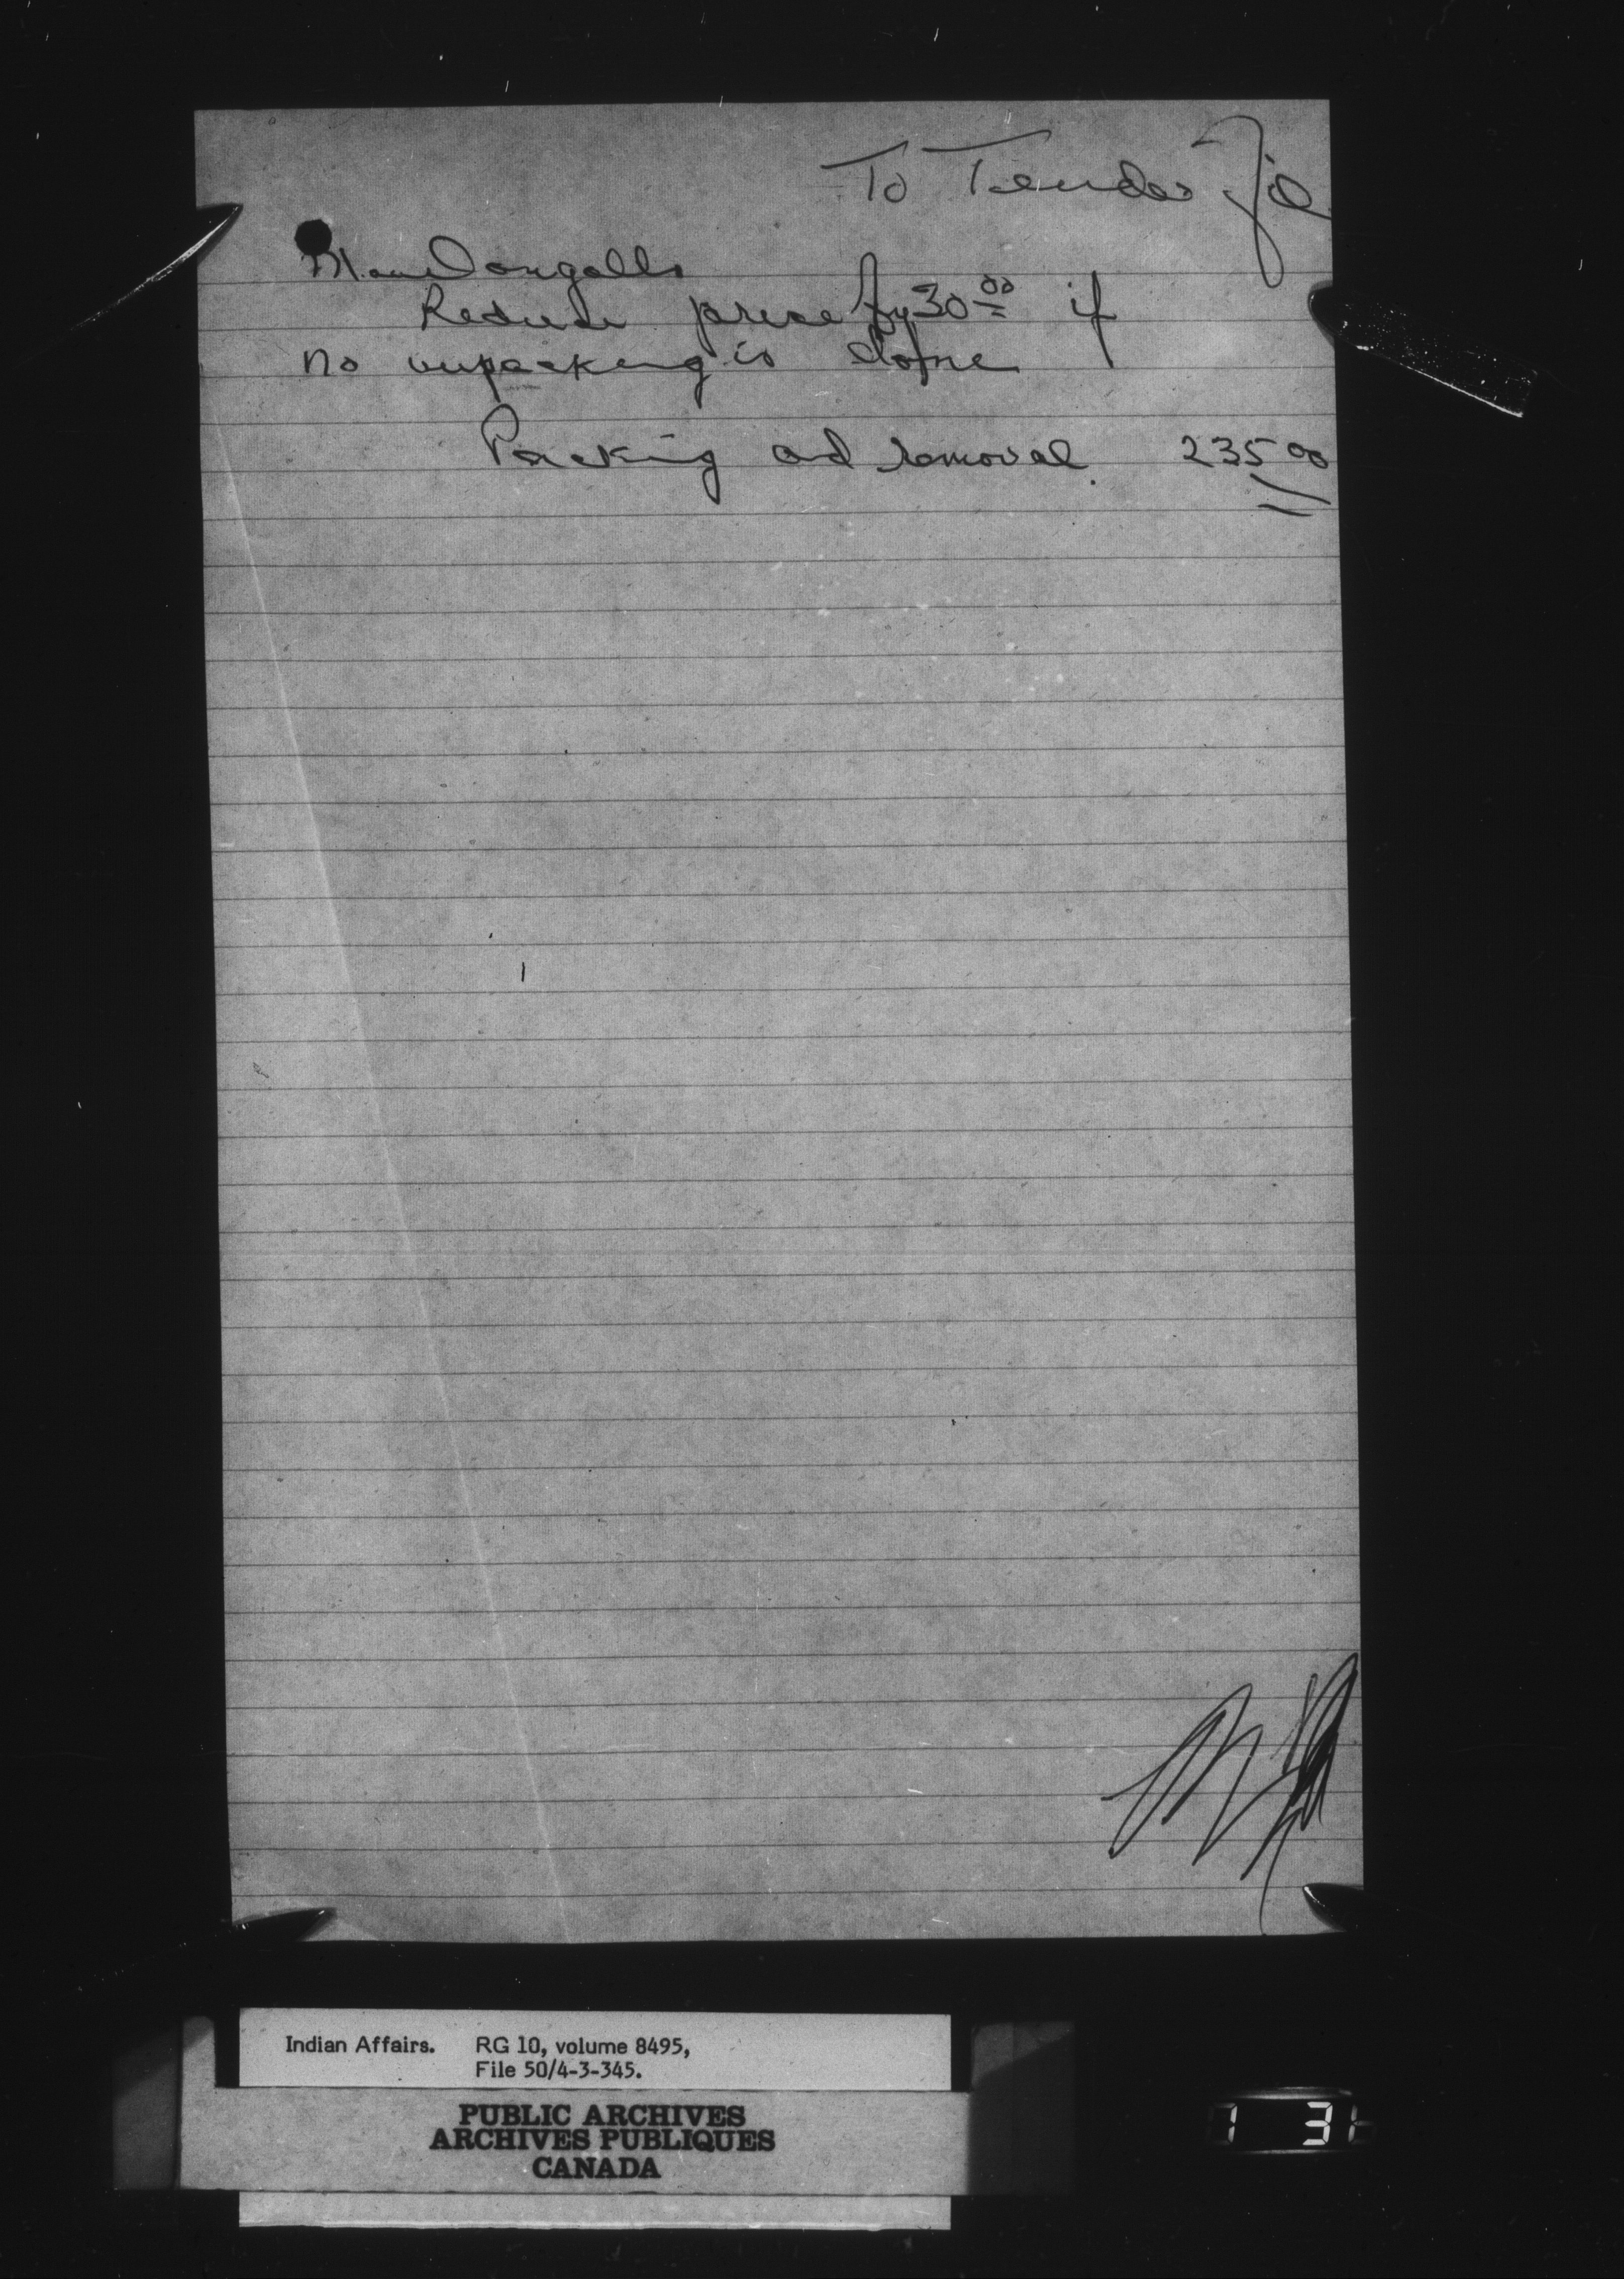 To Tender File
MacDougalls
Reduce price by 30.00 if
no unpacking is done
Packing and removal. 235.00
Indian Affairs. RG 10, volume 8495,
File 50/4-3-345.
PUBLIC ARCHIVES
ARCHIVES PUBLIQUES
CANADA